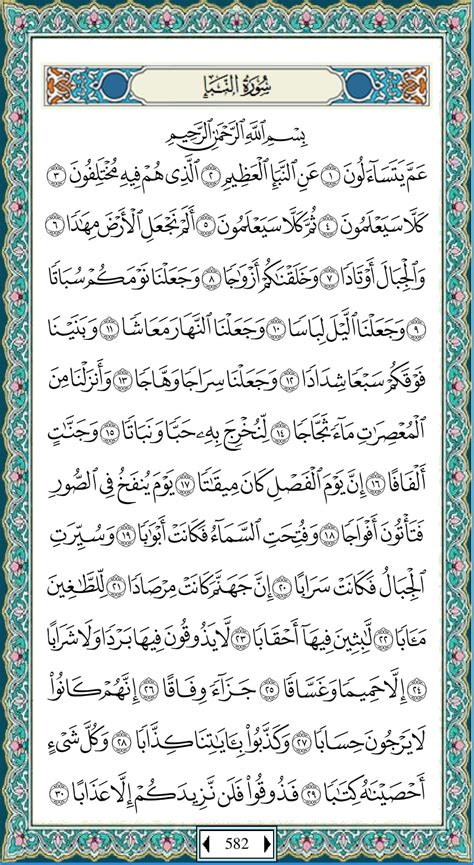 سُورَةُ النَّبَإِ
بِسْمِ اللَّهِ الرَّحْمَٰنِ الرَّحِيمِ
عَمَّ يَتَسَاءَلُونَ ١ عَنِ النَّبَإِ الْعَظِيمِ ٢ الَّذِي هُمْ فِيهِ مُخْتَلِفُونَ ٣
كَلَّا سَيَعْلَمُونَ ٤ ثُمَّ كَلَّا سَيَعْلَمُونَ ٥ أَلَمْ نَجْعَلِ الْأَرْضَ مِهَٰدًا ٦
وَالْجِبَالَ أَوْتَادًا ٧ وَخَلَقْنَاكُمْ أَزْوَاجًا ٨ وَجَعَلْنَا نَوْمَكُمْ سُبَاتًا
٩ وَجَعَلْنَا اللَّيْلَ لِبَاسًا ١٠ وَجَعَلْنَا النَّهَارَ مَعَاشًا ١١ وَبَنَيْنَا
فَوْقَكُمْ سَبْعًا شِدَادًا ١٢ وَجَعَلْنَا سِرَاجًا وَهَّاجًا ١٣ وَأَنزَلْنَا مِنَ
الْمُعْصِرَٰتِ مَاءً ثَجَّاجًا ١٤ لِّنُخْرِجَ بِهِۦ حَبًّا وَنَبَاتًا ١٥ وَجَنَّٰتٍ
أَلْفَافًا ١٦ إِنَّ يَوْمَ الْفَصْلِ كَانَ مِيقَٰتًا ١٧ يَوْمَ يُنفَخُ فِي الصُّورِ
فَتَأْتُونَ أَفْوَاجًا ١٨ وَفُتِحَتِ السَّمَاءُ فَكَانَتْ أَبْوَٰبًا ١٩ وَسُيِّرَتِ
الْجِبَالُ فَكَانَتْ سَرَابًا ٢٠ إِنَّ جَهَنَّمَ كَانَتْ مِرْصَادًا ٢١ لِّلطَّٰغِينَ
مَـَٔابًا ٢٢ لَّٰبِثِينَ فِيهَا أَحْقَابًا ٢٣ لَّا يَذُوقُونَ فِيهَا بَرْدًا وَلَا شَرَابًا
٢٤ إِلَّا حَمِيمًا وَغَسَّاقًا ٢٥ جَزَاءً وِفَاقًا ٢٦ إِنَّهُمْ كَانُوا
لَا يَرْجُونَ حِسَابًا ٢٧ وَكَذَّبُوا بِـَٔايَٰتِنَا كِذَّابًا ٢٨ وَكُلَّ شَيْءٍ
أَحْصَيْنَٰهُ كِتَٰبًا ٢٩ فَذُوقُوا فَلَن نَّزِيدَكُمْ إِلَّا عَذَابًا ٣٠
582